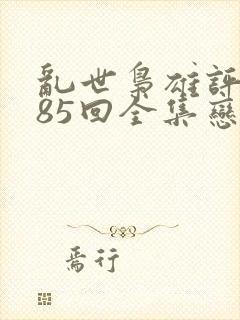 亂世梟雄評
85回全集戀
焉行